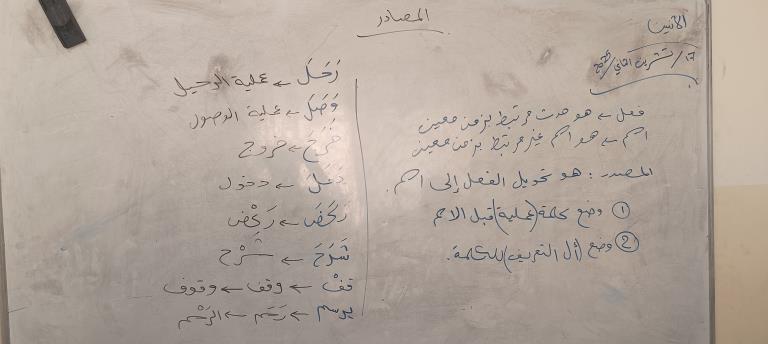 المصادر
الاثنين
١٧/ تشرين الثاني/
فعل ← هو حدث مرتبط بزمن معين
اسم ← هو اسم غير مرتبط بزمن معين
المصدر : هو تحويل الفعل إلى اسم .
① وضع كلمة (عملية) قبل الاسم
② وضع (أل التعريف) للكلمة .
رَحَلَ ← عملية الرحيل
وَصَلَ ← عملية الوصول
خَرَجَ ← خروج
دَخَلَ ← دخول
رَكَضَ ← رَكْض
شَرَحَ ← شَرْح
قفْ ← وقف ← وقوف
يرسم ← رَسَم ← الرَسْم